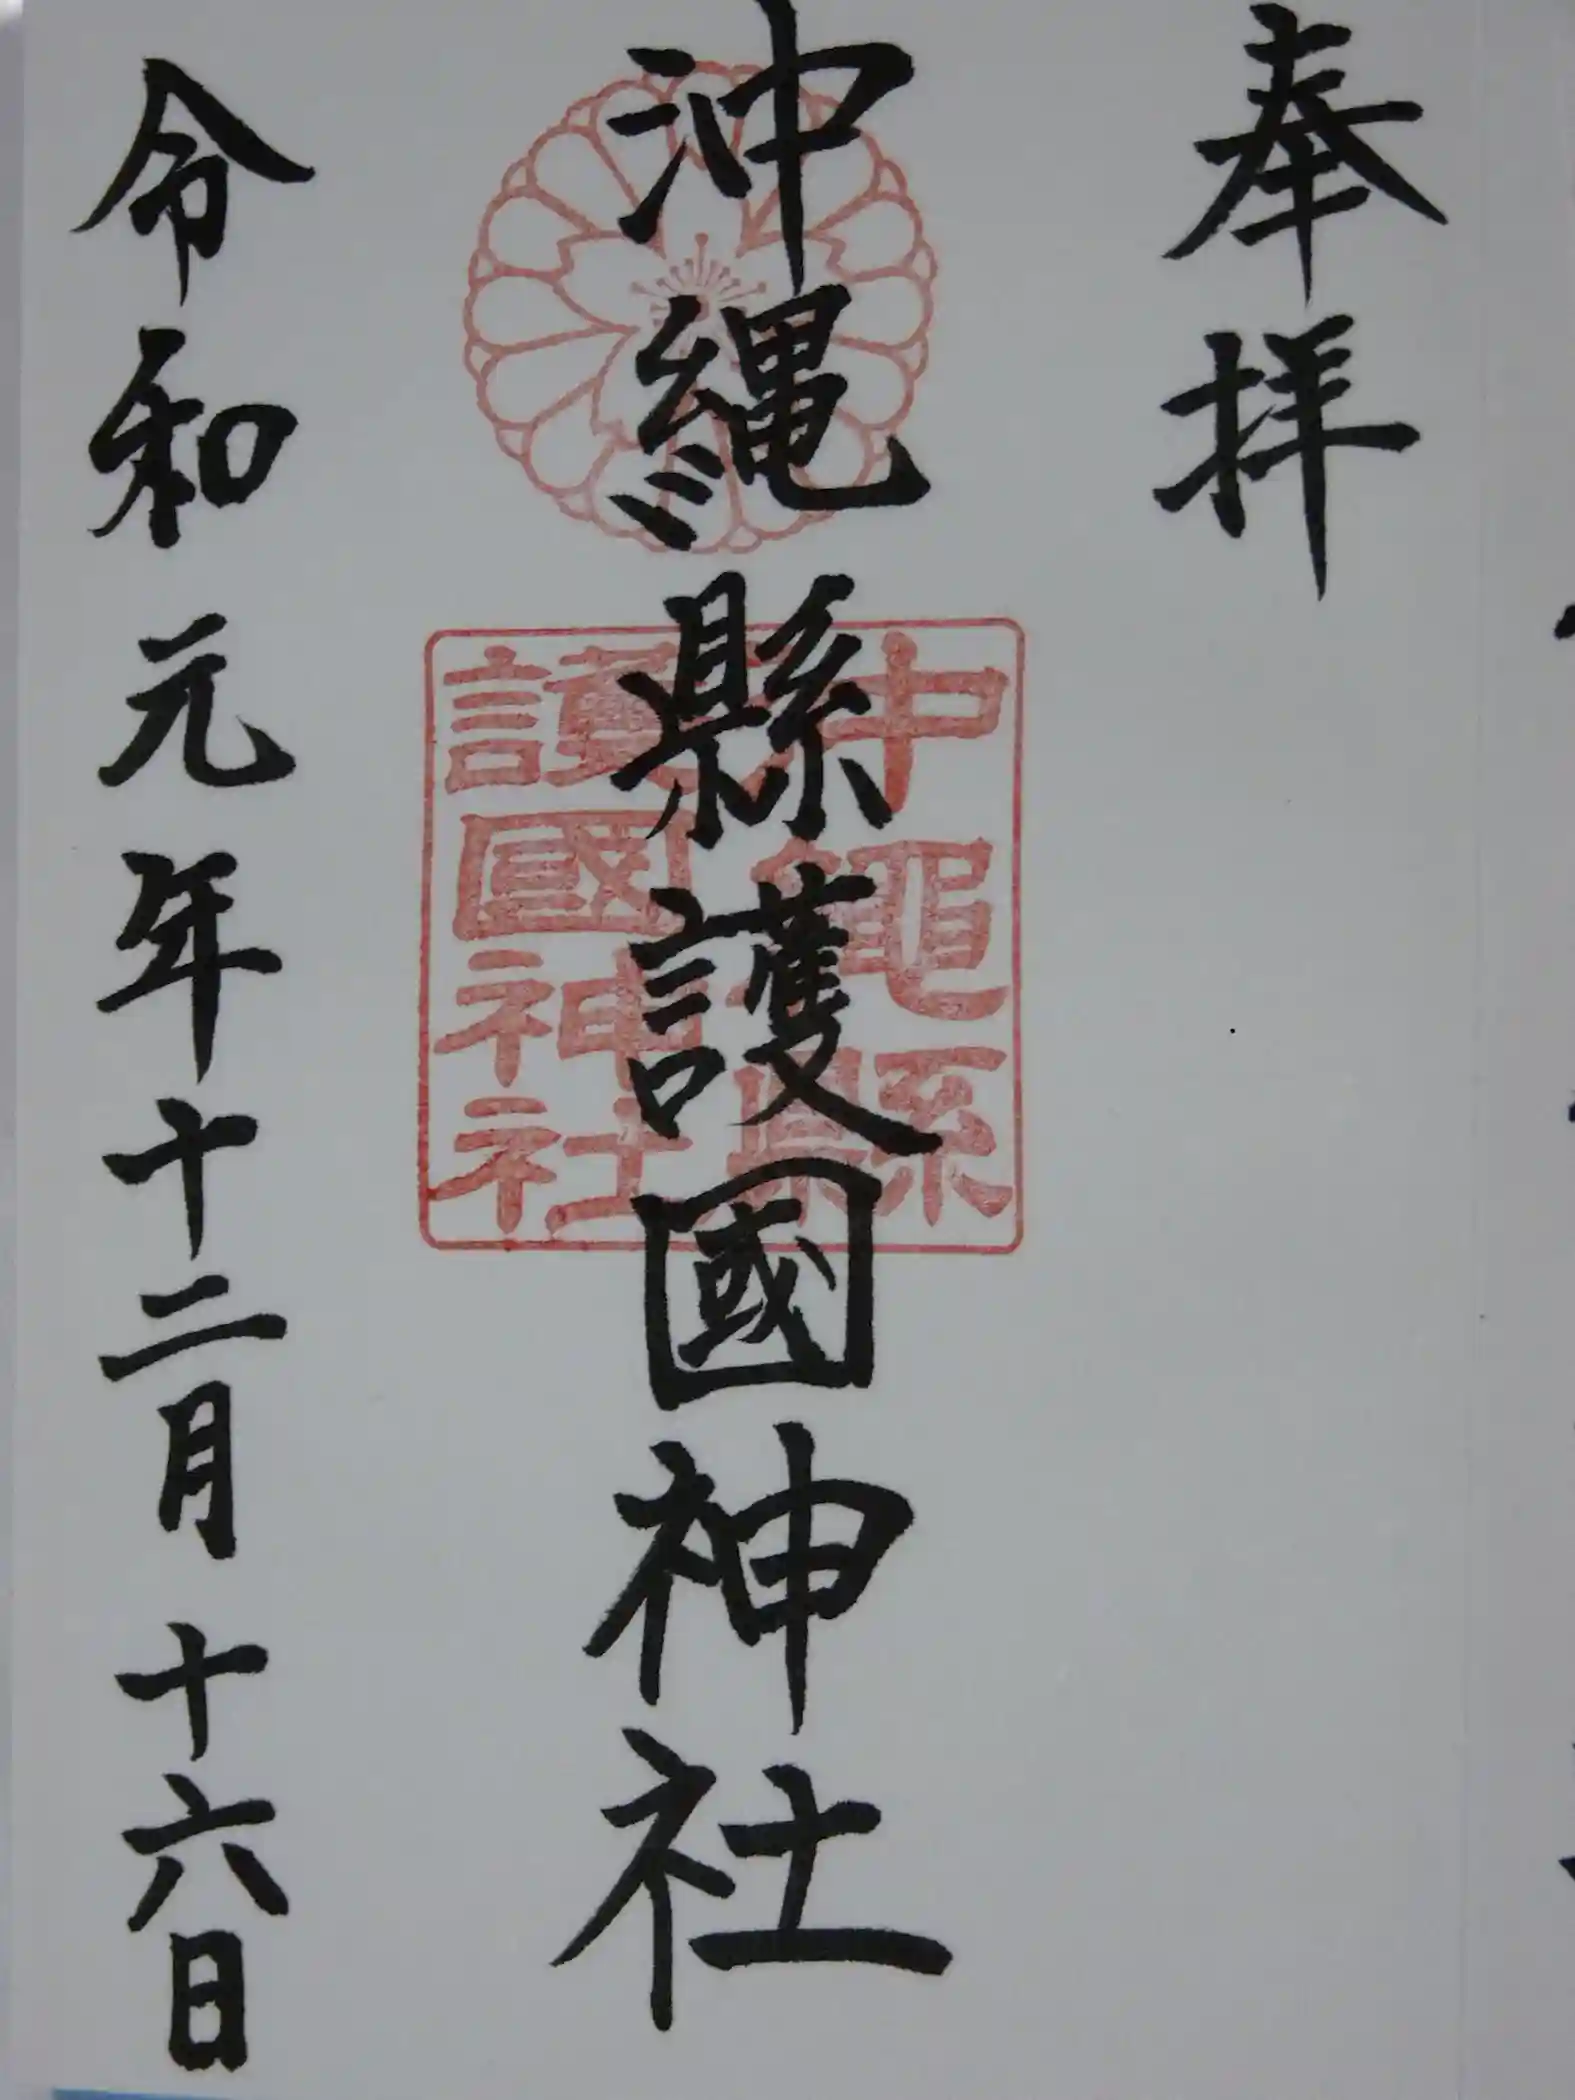 奉拝
沖縄縣護國神社
沖繩縣
護國神社
令和元年十二月十六日